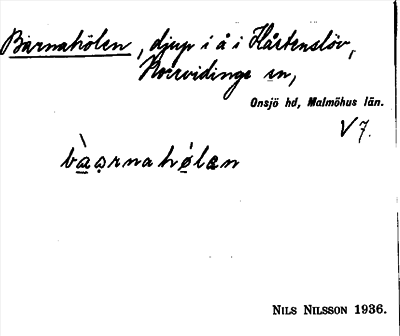 Barnahölen, djup i å i Hårtenslöv,
Norrvidinge sn,
Onsjö hd, Malmöhus län.
V 7.
NILS NILSSON 1936.